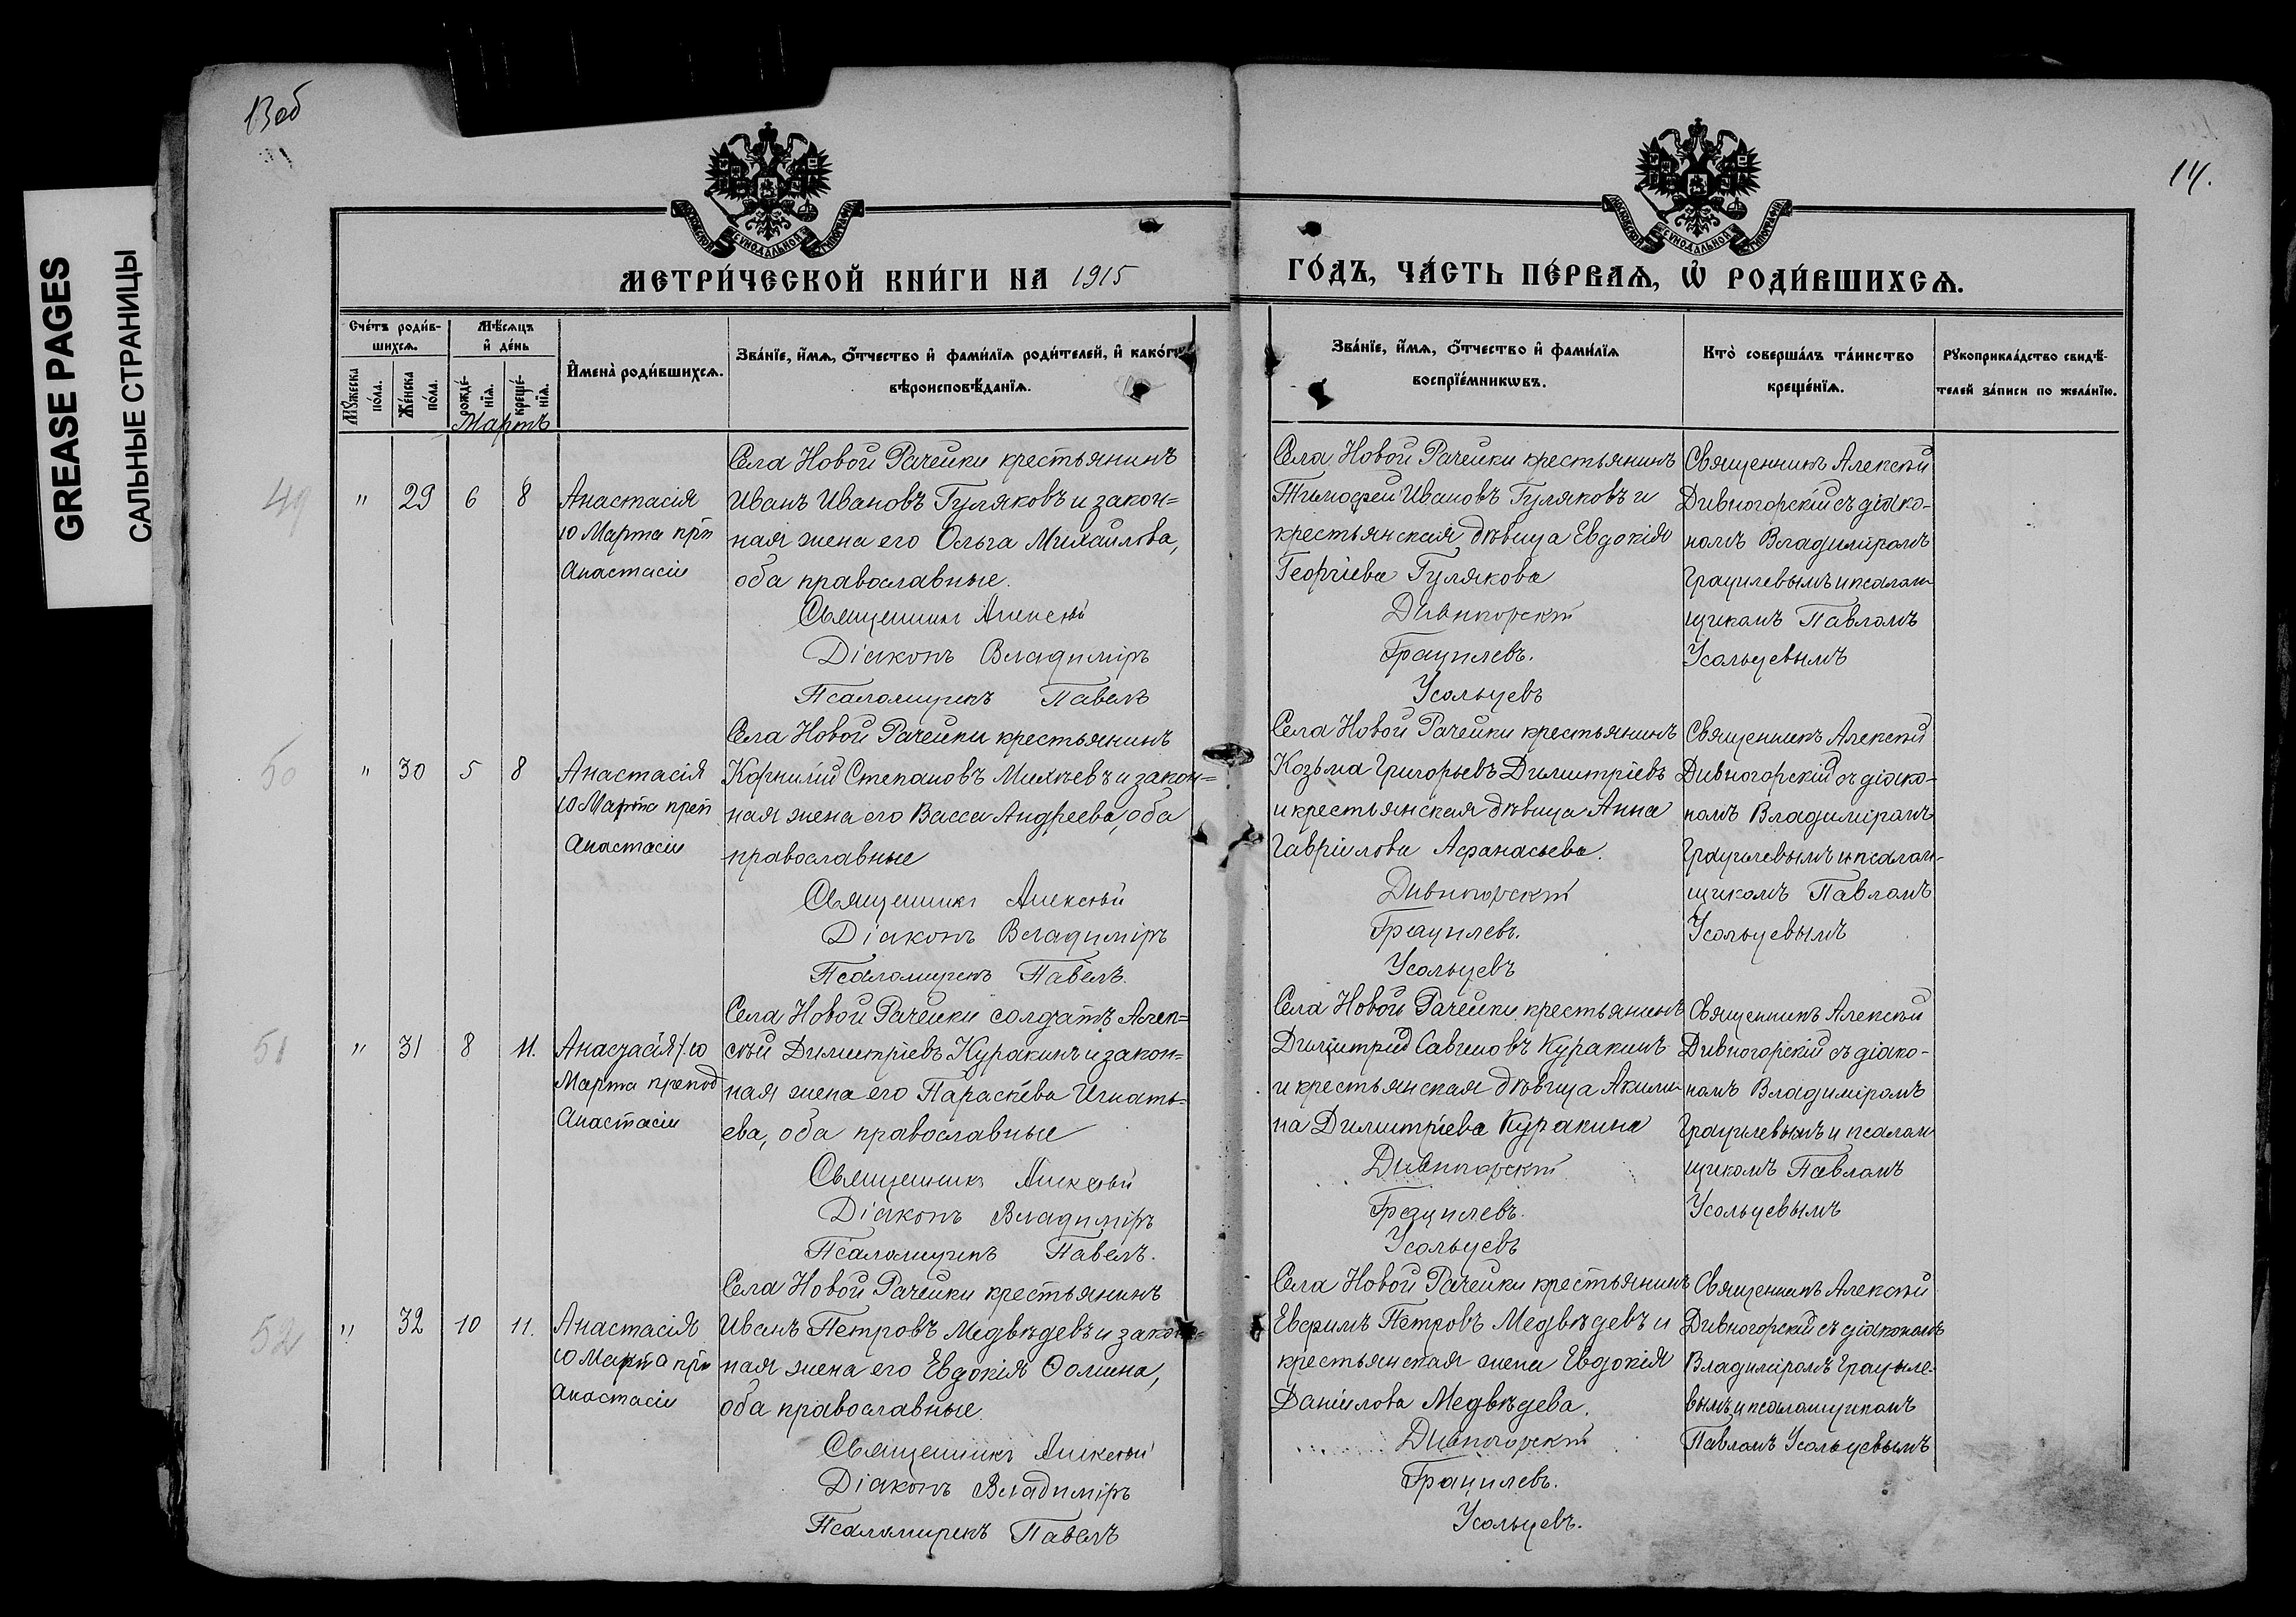 13 об
14.
GREASE PAGES
САЛЬНЫЕ СТРАНИЦЫ
МЕТРИ́ЧЕСКОЙ КНИ́ГИ НА 1915
ГО́ДЪ, ЧА́СТЬ ПЕ́РВАѦ, Ѡ҆ РОДИ́ВШИХСѦ.
Сче́тъ роди́в-
шихсѧ.
Мѣ́сѧцъ
и҆ де́нь
Мꙋ́жеска по́ла.
Же́нска по́ла.
рожде́-нїѧ.
креще́-нїѧ.
И҆мена̀ роди́вшихсѧ.
Зва́нїе, и҆́мѧ, ѻ҆́тчество и҆ фами́лїѧ роди́телей, и҆ како́гѡ
вѣроисповѣ́данїѧ.
Зва́нїе, и҆́мѧ, ѻ҆́тчество и҆ фами́лїѧ
воспрїе́мникѡвъ.
Кто̀ соверша́лъ та́инство
креще́нїѧ.
Рꙋкоприкла́дство свидѣ́-
телей за́писи по жела́нїю.
Мартъ
49
" 29 6 8
Анастасія
10 Марта прп
Анастасіи
Села Новой Рачейки крестьянинъ
Иванъ Ивановъ Гуляковъ и закон=
ная жена его Ольга Михаилова,
оба православные.
Священникъ Алексѣй
Діаконъ Владиміръ
Псаломщикъ Павелъ
Села Новой Рачейки крестьянинъ
Тимофей Ивановъ Гуляковъ и
крестьянская дѣвица Евдокія
Георгіева Гулякова
Дивногорскій
Грацилевъ.
Усольцевъ
Священникъ Алексѣй
Дивногорскій съ діако-
номъ Владиміромъ
Грацилевымъ и псалом-
щикомъ Павломъ
Усольцевымъ
50
" 30 5 8
Анастасія
10 Марта преп
Анастасіи
Села Новой Рачейки крестьянинъ
Корнилій Степановъ Михѣевъ и закон=
ная жена его Васса Андреева, оба
православные
Священникъ Алексѣй
Діаконъ Владиміръ
Псаломщикъ Павелъ.
Села Новой Рачейки крестьянинъ
Козьма Григорьевъ Димитріевъ
и крестьянская дѣвица Анна
Гавріилова Афанасьева.
Дивногорскій
Грацилевъ.
Усольцевъ
Священникъ Алексѣй
Дивногорскій съ діако-
номъ Владиміромъ
Грацилевымъ и псалом-
щикомъ Павломъ
Усольцевымъ
51
" 31 8 11.
Анастасія 10
Марта препод
Анастасіи
Села Новой Рачейки солдатъ Алек=
сѣй Димитріевъ Куракинъ и закон=
ная жена его Параскева Игнать=
ева, оба православные
Священникъ Алексѣй
Діаконъ Владиміръ
Псаломщикъ Павелъ.
Села Новой Рачейки крестьянинъ
Димитрій Савиновъ Куракинъ
и крестьянская дѣвица Акили-
на Димитріева Куракина
Дивногорскій
Грацилевъ.
Усольцевъ
Священникъ Алексѣй
Дивногорскій съ діако-
номъ Владиміромъ
Грацилевымъ и псалом
щикомъ Павломъ
Усольцевымъ
52
" 32 10 11.
Анастасія
10 Марта прп
Анастасіи
Села Новой Рачейки крестьянинъ
Иванъ Петровъ Медвѣдевъ и закон=
ная жена его Евдокія Ѳомина,
оба православные.
Священникъ Алексѣй
Діаконъ Владиміръ
Псаломщикъ Павелъ
Села Новой Рачейки крестьянинъ
Евфимъ Петровъ Медвѣдевъ и
крестьянская жена Евдокія
Даніилова Медвѣдева.
Дивногорскій
Грацилевъ.
Усольцевъ.
Священникъ Алексѣй
Дивногорскій съ діакономъ
Владиміромъ Грациле-
вымъ и псаломщикомъ
Павломъ Усольцевымъ